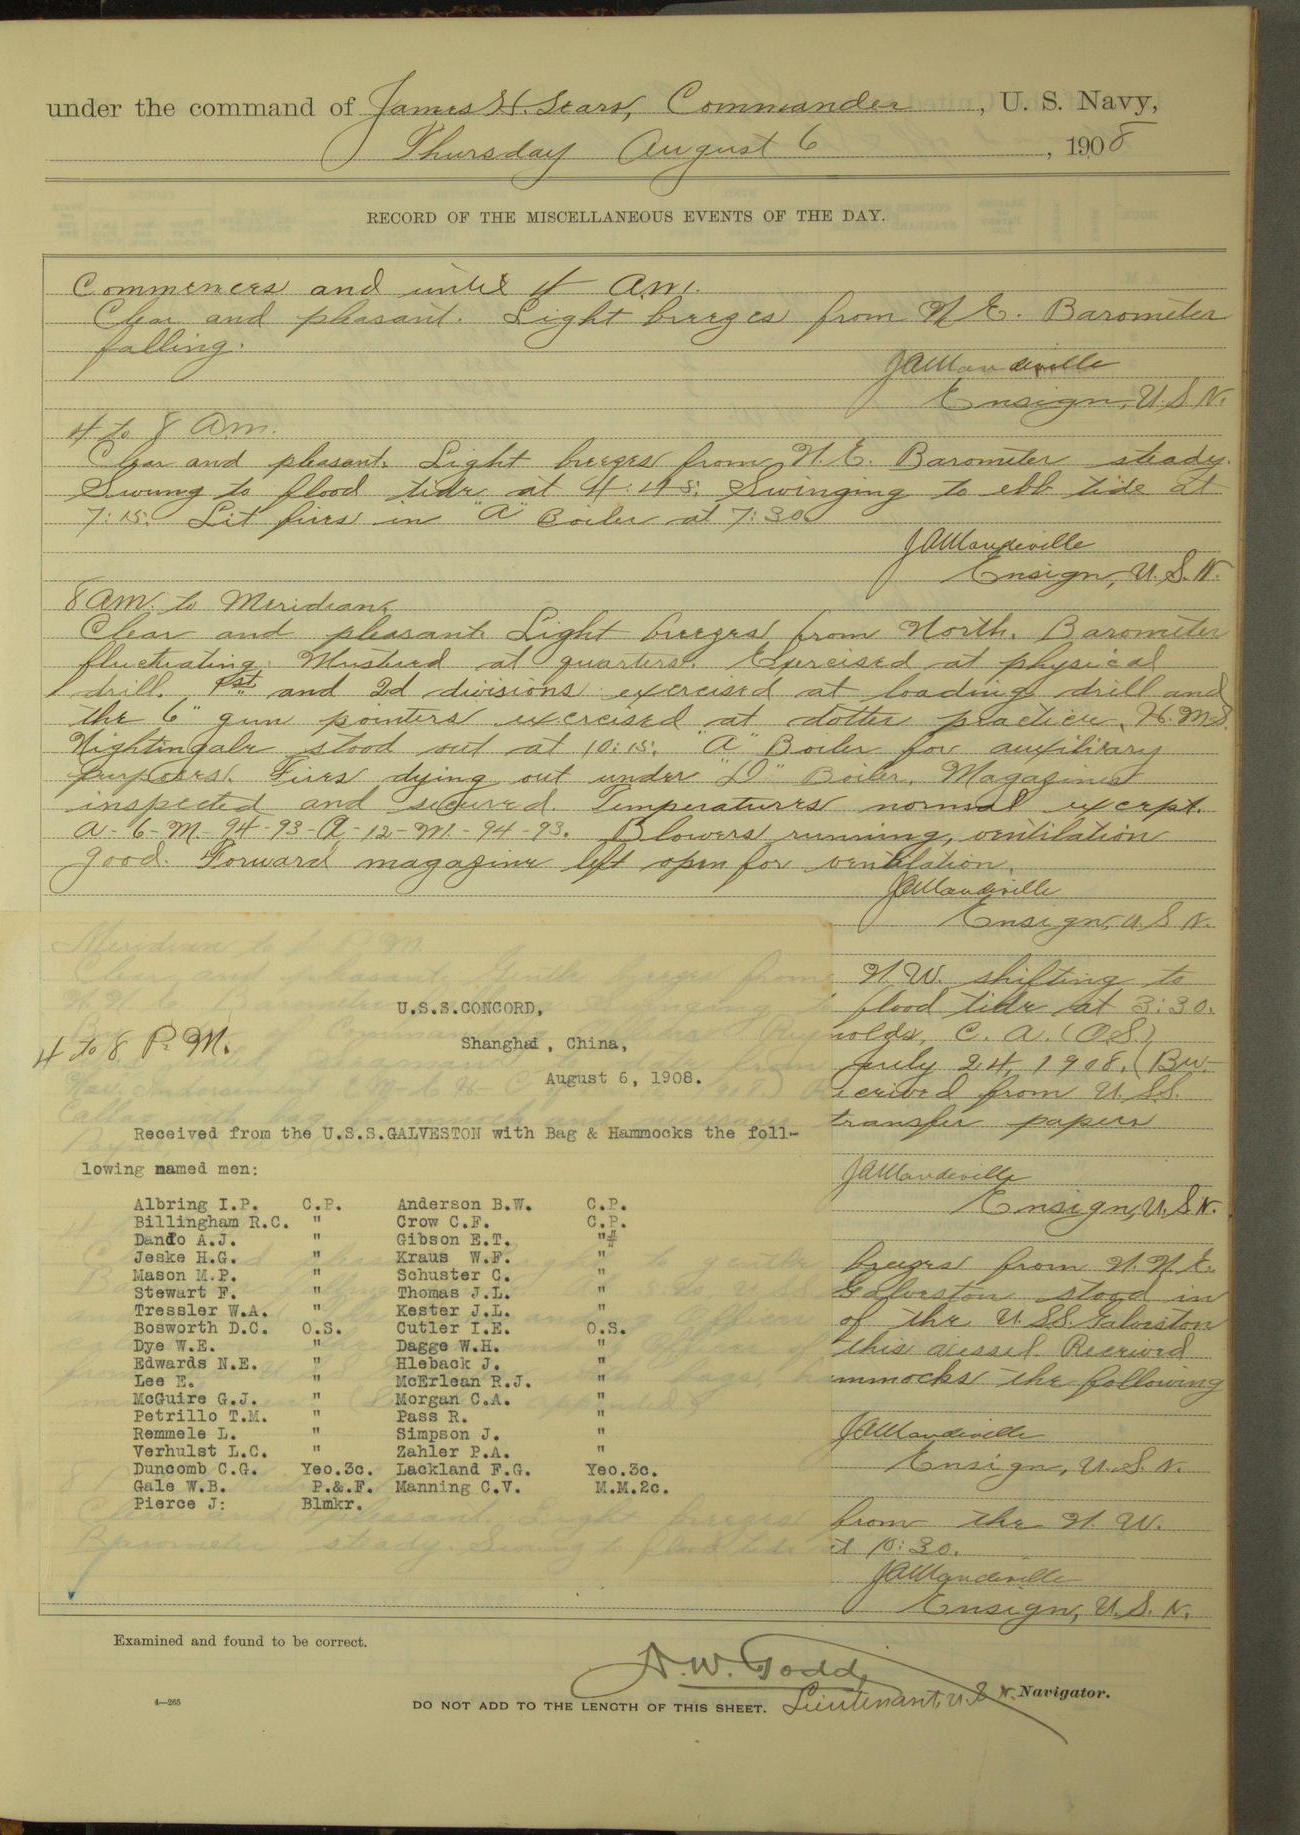 under the command of James H. Sears, Commander, U. S. Navy,
Thursday August 6, 1908
RECORD OF THE MISCELLANEOUS EVENTS OF THE DAY.
Commences and until 4 A.M.
Clear and pleasant. Light breezes from N.E. Barometer
falling.
JAMandeville
Ensign, U.S.N.
4 to 8 A.M.
Clear and pleasant. Light breezes from N.E. Barometer steady.
Swung to flood tide at 4:45. Swinging to ebb tide at
7:15. Lit fires in "A" Boiler at 7:30
JAMandeville
Ensign, U.S.N.
8 A.M. to Meridian.
Clear and pleasant. Light breezes from North. Barometer
fluctuating. Mustered at quarters. Exercised at physical
drill. 1st and 2d divisions exercised at loading drill and
the 6" gun pointers exercised at dotter practice. H.M.S.
Nightingale stood out at 10:15. "A" Boiler for auxiliary
purposes. Fires dying out under "D" Boiler. Magazines
inspected and secured. Temperatures normal except.
A-6-M-94-93-A-12-M-94-93. Blowers running, ventilation
good. Forward magazine left open for ventilation.
JAMandeville
Ensign, U.S.N.
Meridian to 4 P.M.
Clear and pleasant. Gentle breezes from N.W. shifting to
flood tide at 3:30.
nolds, C. A. (O.S.)
July 24, 1908. (Bu-
eceived from U.S.S.
transfer papers
JAMandeville
Ensign, U.S.N.
4 to 8 P.M.
breezes from N.N.E.
Galveston stood in
of the U.S.S. Galveston
this vessel. Received
mmocks the following
JAMandeville
Ensign, U.S.N.
Clear and pleasant. Light breezes from the N.W.
Barometer steady. Swung to flood tide at 10:30.
JAMandeville
Ensign, U.S.N.
U.S.S.CONCORD,
Shanghai, China,
August 6, 1908.
Received from the U.S.S.GALVESTON with Bag & Hammocks the foll-
lowing named men:
Albring I.P. C.P. Anderson B.W. C.P.
Billingham R.C. " Crow C.F. C.P.
Dando A.J. " Gibson E.T. "
Jeske H.G. " Kraus W.F. "
Mason M.P. " Schuster C. "
Stewart F. " Thomas J.L. "
Tressler W.A. " Kester J.L. "
Bosworth D.C. O.S. Cutler I.E. O.S.
Dye W.E. " Dagge W.H. "
Edwards N.E. " Hleback J. "
Lee E. " McErlean R.J. "
McGuire G.J. " Morgan C.A. "
Petrillo T.M. " Pass R. "
Remmele L. " Simpson J. "
Verhulst L.C. " Zahler P.A. "
Duncomb C.G. Yeo.3c. Lackland F.G. Yeo.3c.
Gale W.B. P.&.F. Manning C.V. M.M.2c.
Pierce J: Blmkr.
Examined and found to be correct.
A. W. Todd,
Lieutenant, U.S.N. Navigator.
4—265
DO NOT ADD TO THE LENGTH OF THIS SHEET.